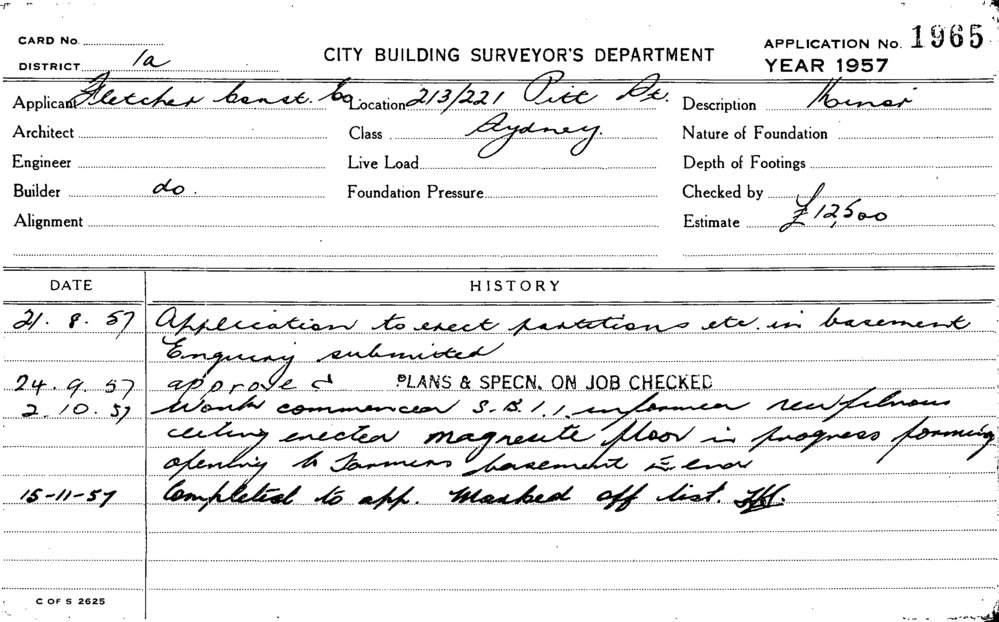 CARD No.
DISTRICT 1a
CITY BUILDING SURVEYOR'S DEPARTMENT
APPLICATION No. 1965
YEAR 1957
Applicant Fletcher Const. Co Location 213/221 Pitt St. Description Minor
Architect Class Sydney. Nature of Foundation
Engineer Live Load Depth of Footings
Builder do. Foundation Pressure Checked by
Alignment Estimate £12,500
DATE HISTORY
21. 8. 57 Application to erect partitions etc. in basement
Enquiry submitted
24. 9. 57 approved PLANS & SPECN. ON JOB CHECKED
2. 10. 57 Work commenced S.B.I. informed new fibrous
ceiling erected magnesite floor in progress forming
opening to Farmers basement end
15-11-57 Completed to app. Marked off list.
C OF S 2625